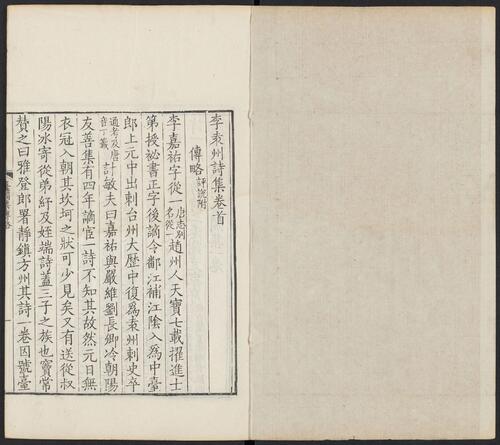 李袁州詩集卷首
傳略評説附
李嘉祐字從一唐志別名從一趙州人天寶七載擢進士
第授祕書正字後謫令鄱江補江陰入為中臺
郎上元中出刺台州大歷中復為袁州刺史卒
通考及唐音丁籤計敏夫曰嘉祐與嚴維劉長卿冷朝陽
友善集有四年謫宦一詩不知其故然元日無
衣冠入朝其坎坷之狀可少見矣又有送從叔
陽冰寄從弟紓及姪端詩蓋三子之族也竇常
贊之曰雅登郎署靜鎮方州其詩一卷因號臺